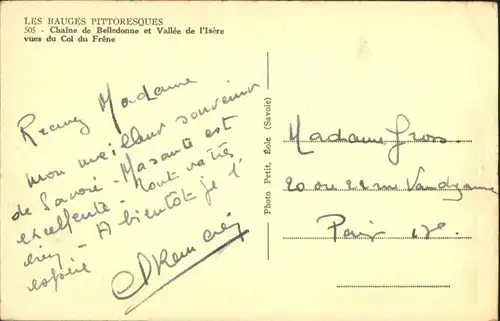 LES BAUGES PITTORESQUES
505 - Chaîne de Belledonne et Vallée de l'Isère
vues du Col du Frêne
Recevez Madame
mon meilleur souvenir
de Savoie - Ma santé est
excellente -
A bientôt je l'
espère
Photo Petit, Ecole (Savoie)
Madame Gross
20 ou 22 rue Vandezanne
Paris 13e.